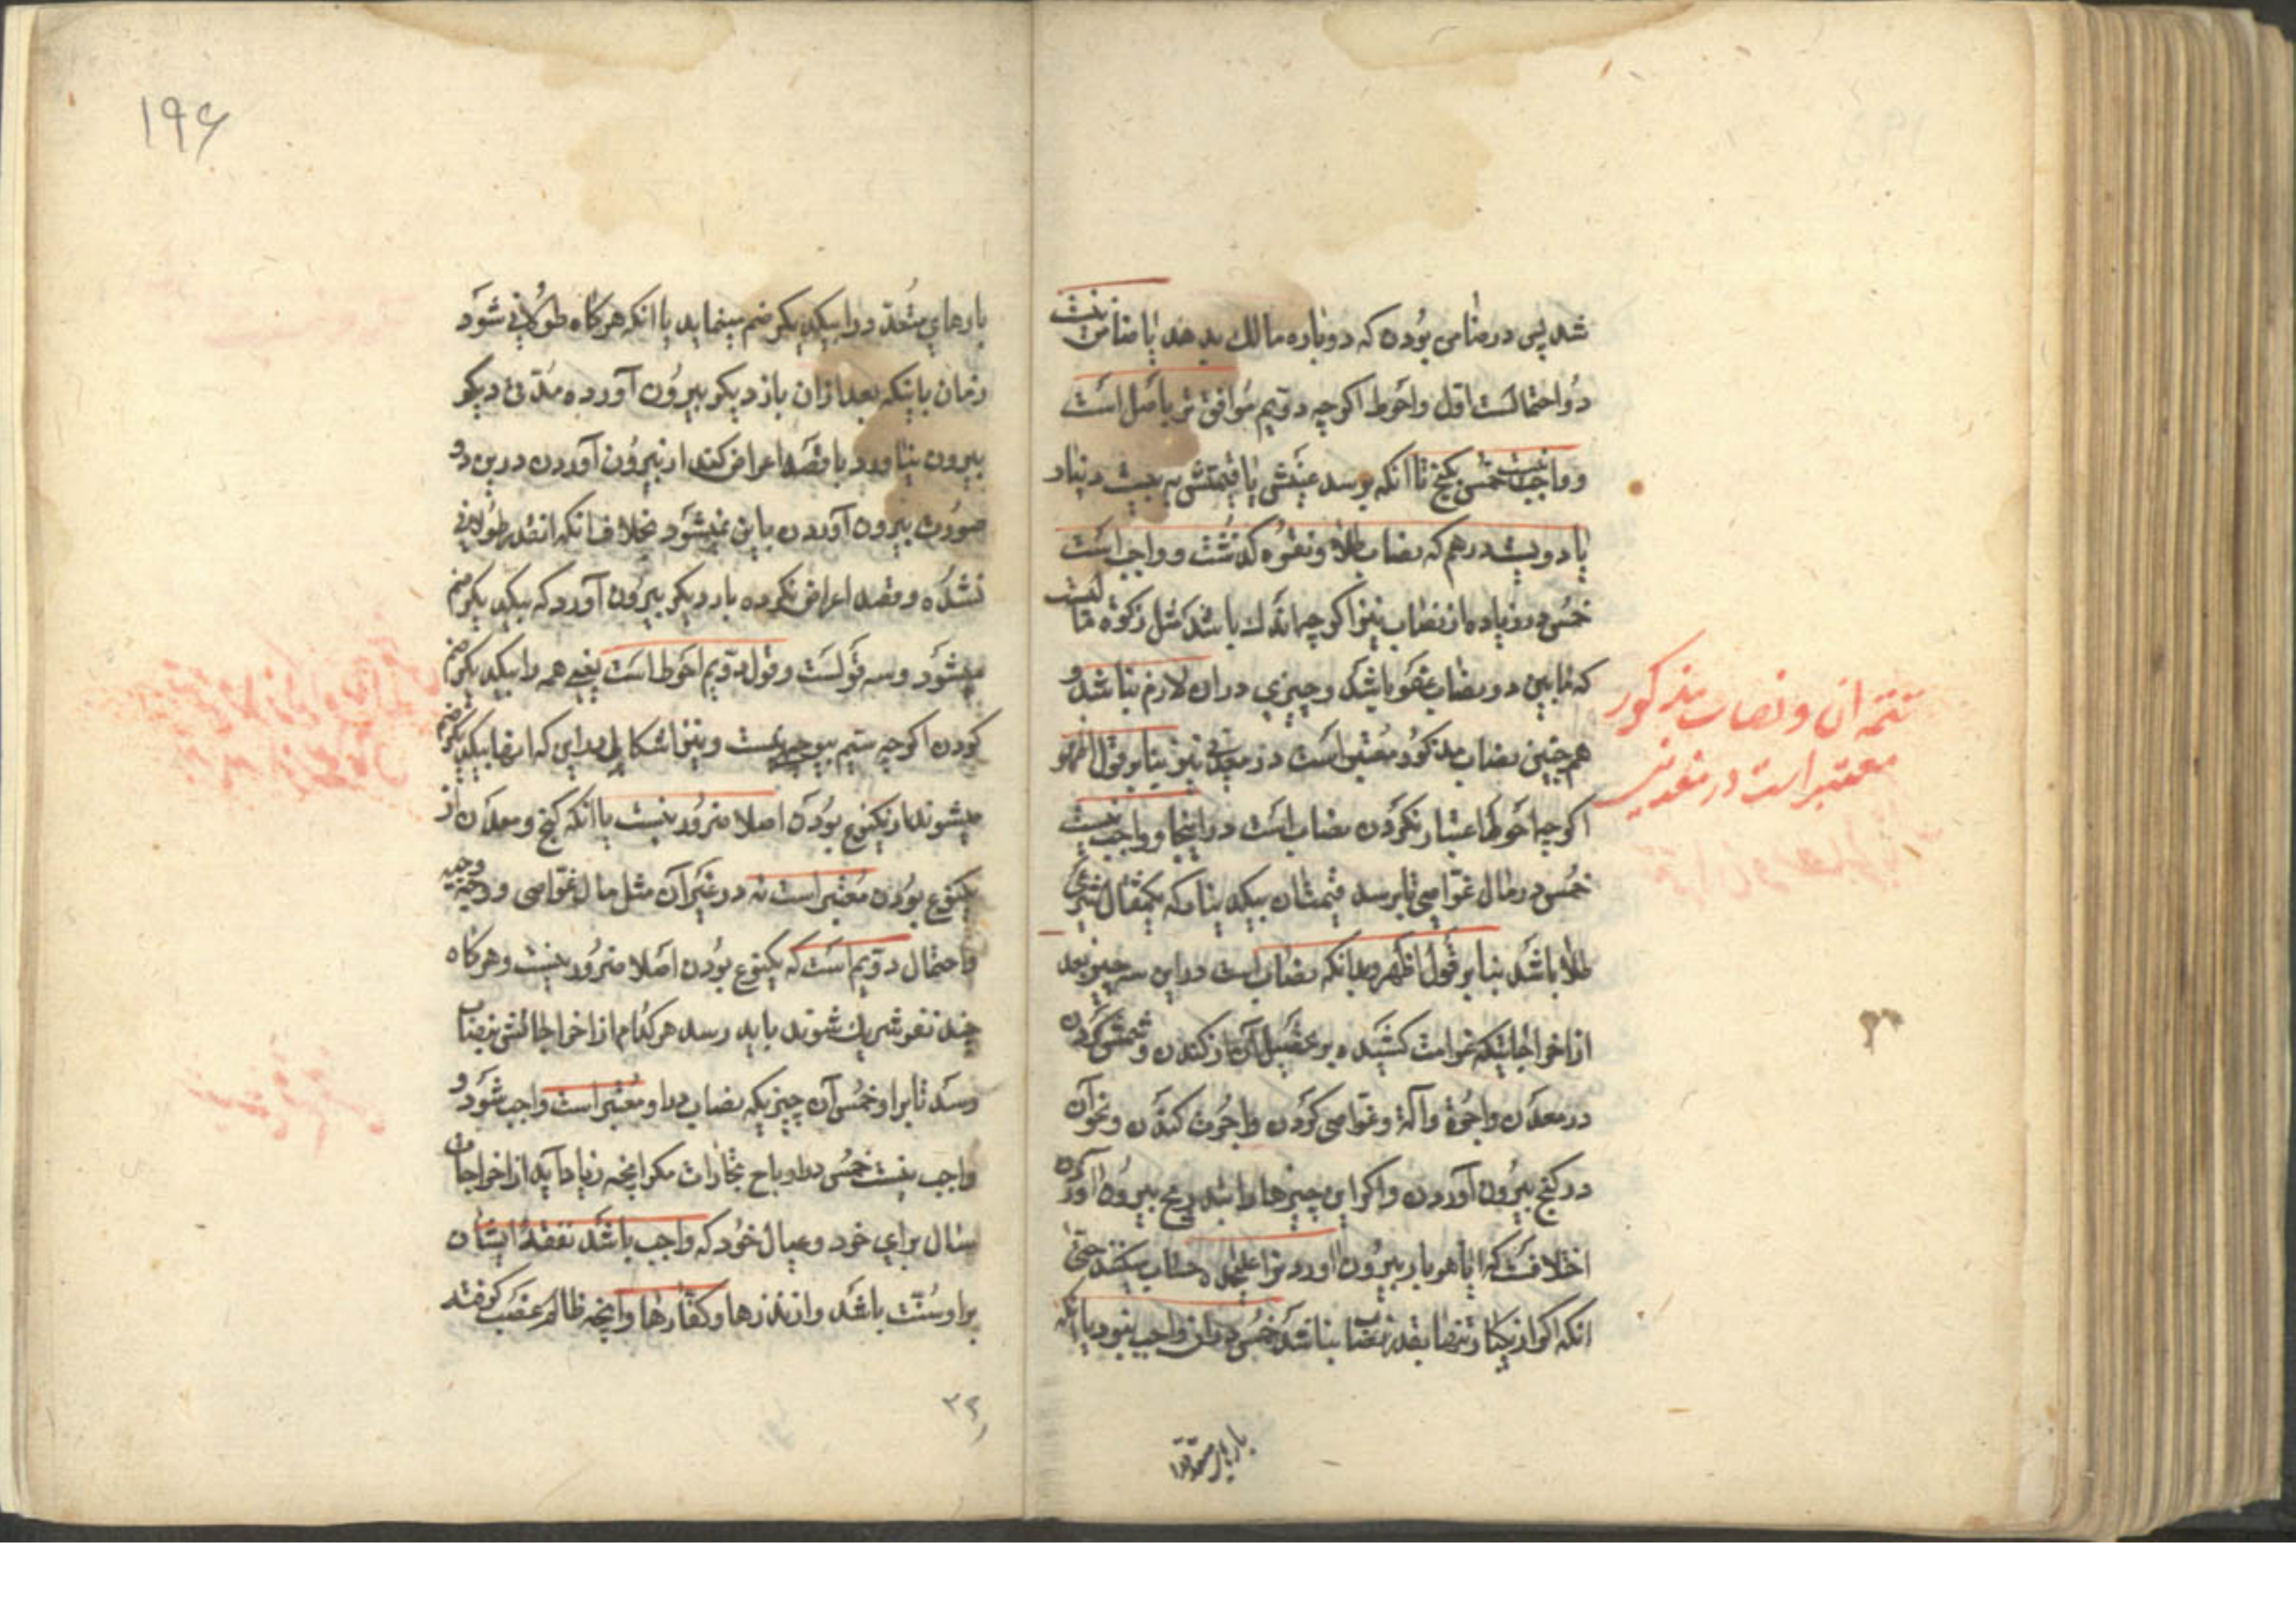 شد پس در ضامن بودن که دوباره مالک بدهد یا ضامن نیست
دو احتمالست اول واحوط اکرچه دویم موافق تر باصل است
و واجب نیست خمس کنج تا آنکه برسد عینش یا قیمتش به بیست دینار
یا دویست درهم که نصاب طلا و نقره کذشت و واجب است
خمس در زیاده از نصاب نیز اکرچه اندک باشد مثل زکوة نیست
که مابین دو نصاب عفو باشد و چیزی در ان لازم نباشد و
همچنین نصاب مذکور معتبر است در معدن نیز بنابر قول اظهر و
اکرچه احوط اعتبار نکردن نصاب است در اینجا و واجب نیست
خمس در مال غواصی تا برسد قیمتشان بیک دینار که یکمثقال شرعی
طلا باشد بنا بر قول اظهر و بدانکه نصاب است در این سه چیز بعد
از اخراجاتیکه غرامت کشیده بر تحصیل آن از کندن و
در معدن واجرة وآلة و غواصی کردن واجرت کندن و نحو آن
در کنج بیرون آوردن واکر این چیزها را بتدریج بیرون آورد
اختلافست که ایا هر بار بیرون آوردنرا علیحده حساب میکنند حتی
انکه اکر از یکبار تنها بقدر نصاب نباشد خمس در ان واجب نبود یا آنکه
بارهای متعدد را
تتمه ان و نصاب مذکور
معتبر است در معدن نیز
۱۹۶
بارهای متعدد را بیکدیکر ضم مینماید یا انکه هرکاه طولانی شود
زمان باینکه بعد از ان باز دیکر بیرون آورده مدتی دیکر
بیرون نیاورد یا قصد اعراض کند از بیرون آوردن درین دو
صورت بیرون آوردن باین نمیشود بخلاف انکه انقدر طولانی
نشده و قصد اعراض نکرده بار دیکر بیرون آورد که بیکدیکر ضم
میشود و سه قولست و قول دویم احوط است یعنی همه را بیکدیکر ضم
کردن اکرچه سیم بیوجه نیست و نیز اشکالی در این که ایضا بیکدیکر ضم
میشوند از یکنوع بودن اصلا ضرور نیست یا انکه کنج و معدن از
یکنوع بودن معتبر است نه در غیر آن مثل مال غواصی و وجیه
واحتمال دویم است که یکنوع بودن اصلا ضرور نیست و هرکاه
چند نفر شریک شوند باید رسد هر کدام از اخراجاتش بنصاب
رسد تا بر او خمس آن چیزیکه نصاب در او معتبر است واجب شود و
واجب نیست خمس در ارباح تجارات مکر انچه زیاد آید از اخراجات
سال برای خود و عیال خود که واجب باشد نفقهٔ ایشان
بر او سنت باشد و از نذرها و کفارها و انچه ظالم غصب کرفته